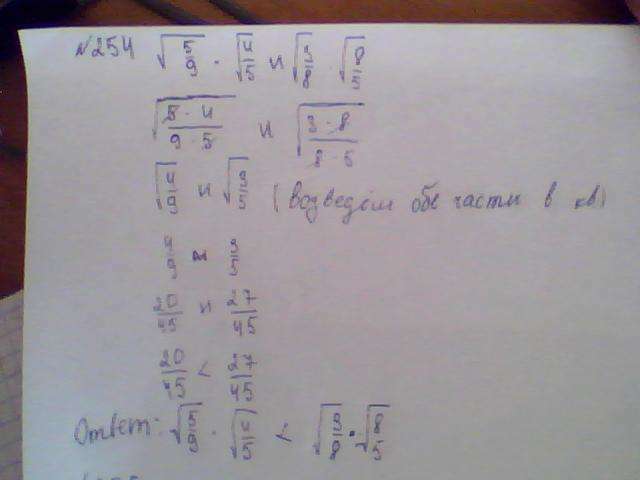 №254 √5/9 · √4/5 и √3/8 √8/5
√5·4/9·5 и √3·8/8·5
√4/9 и √3/5 (возведём обе части в кв)
4/9 и 3/5
20/45 и 27/45
20/45 < 27/45
Ответ: √5/9 · √4/5 < √3/8 · √8/5